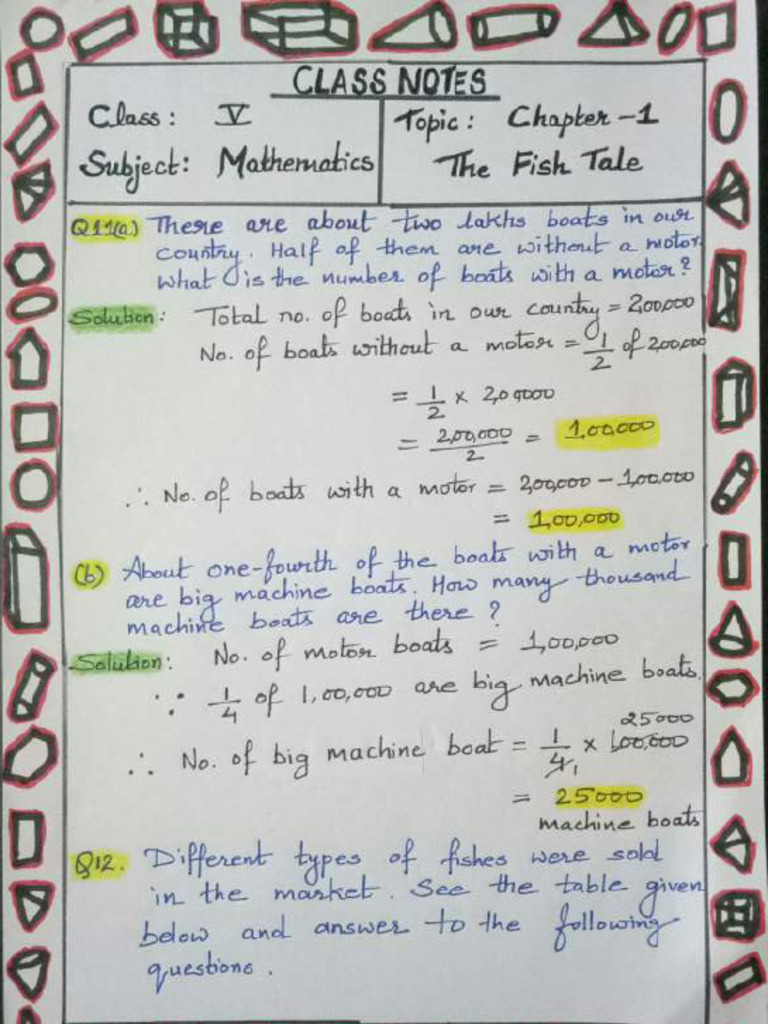 CLASS NOTES
Class: V
Subject: Mathematics
Topic: Chapter -1
The Fish Tale
Q11(a) There are about two lakhs boats in our
country. Half of them are without a motor.
What is the number of boats with a motor?
Solution: Total no. of boats in our country = 2,00,000
No. of boats without a motor = 1/2 of 2,00,000
= 1/2 × 2,00,000
= 2,00,000/2 = 1,00,000
∴ No. of boats with a motor = 2,00,000 - 1,00,000
= 1,00,000
(b) About one-fourth of the boats with a motor
are big machine boats. How many thousand
machine boats are there?
Solution: No. of motor boats = 1,00,000
∵ 1/4 of 1,00,000 are big machine boats.
25000
∴ No. of big machine boat = 1/4 1 × 1,00,000
= 25000
machine boats
Q12. Different types of fishes were sold
in the market. See the table given
below and answer to the following
questions.